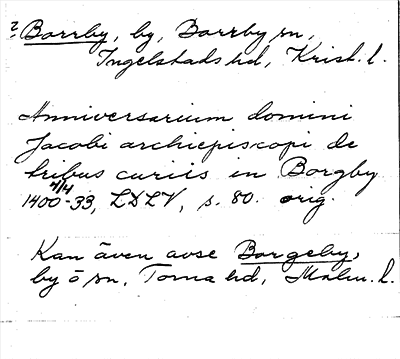 ? Borrby, by, Borrby sn,
Ingelstads hd, Krist. l.
Anniversarium domini
Jacobi archiepiscopi de
tribus curiis in Borgby
1400 4/4 -33, LDLV, s. 80. orig.
Kan även avse Borgeby,
by o sn, Torna hd, Malm. l.